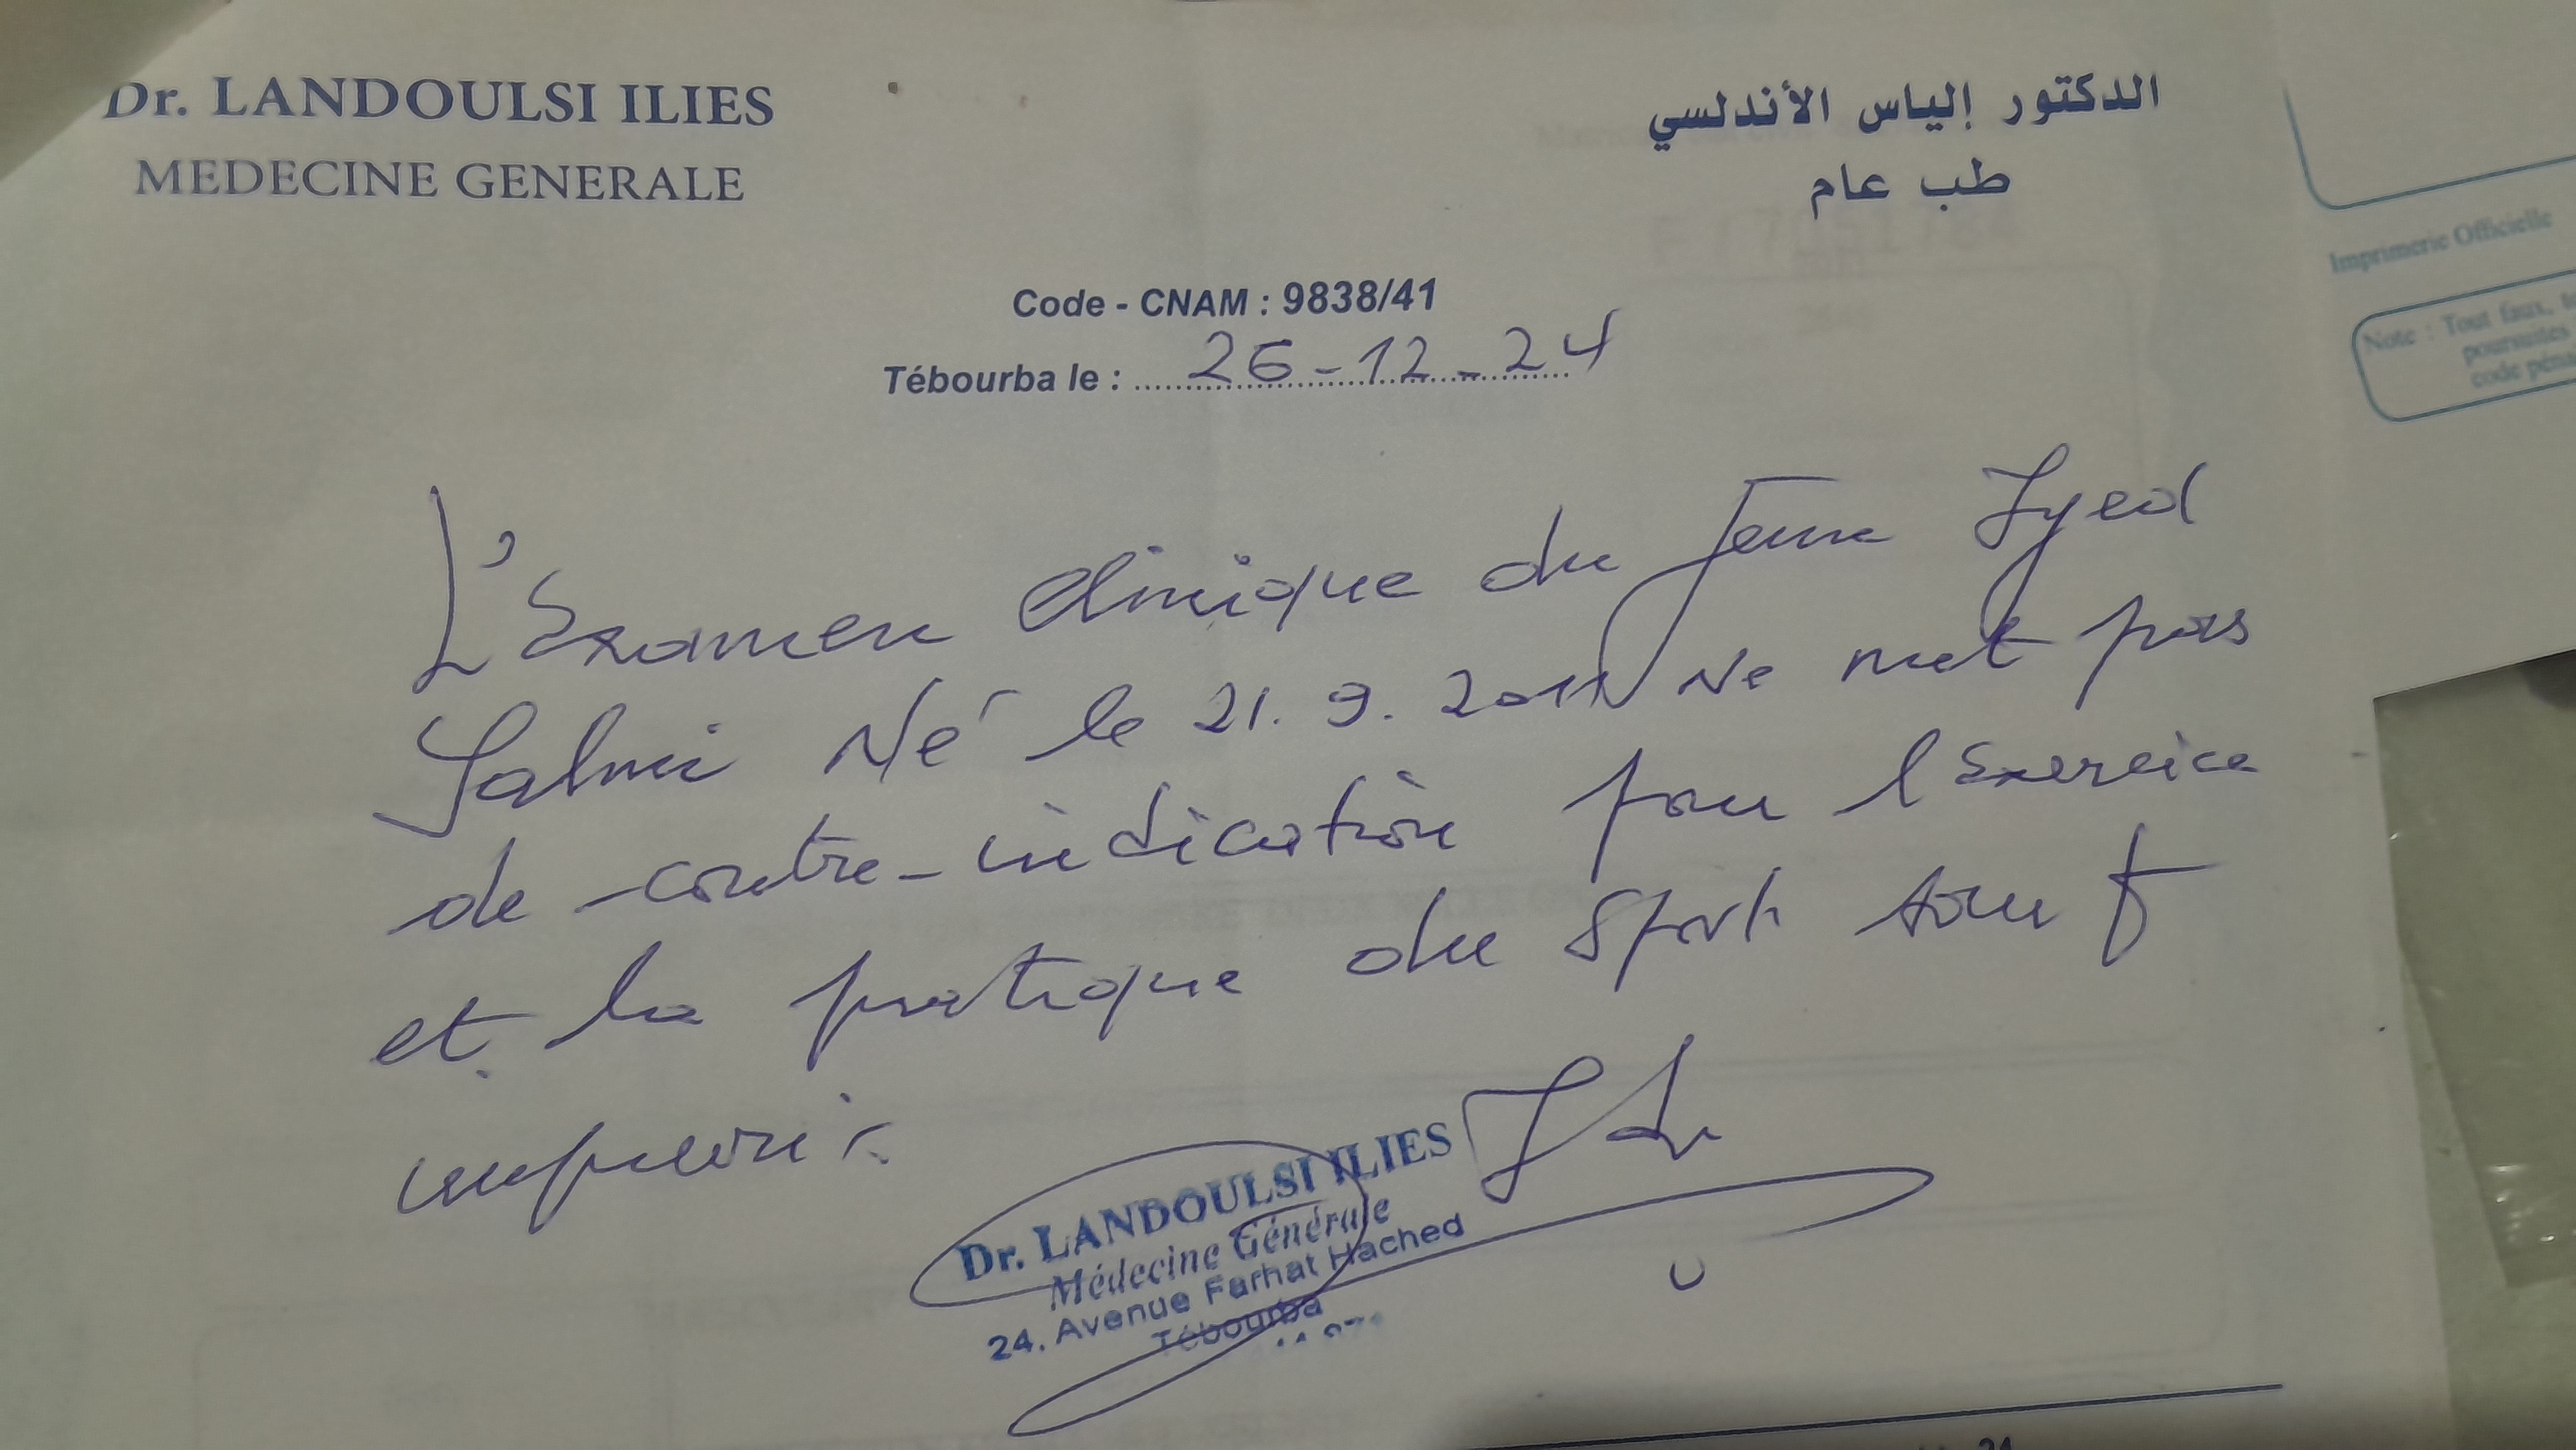 Dr. LANDOULSI ILIES
MEDECINE GENERALE
الدكتور إلياس الأندلسي
طب عام
Code - CNAM : 9838/41
Tébourba le : 26-12-24
L'Examen clinique du jeune Iyed
Salmi Né le 21.9.2011 Ne met pas
de contre-indication pour l'Exercice
et la pratique du Sport sauf
imprévis.
Dr. LANDOULSI ILIES
Médecine Générale
24, Avenue Farhat Hached
Tébourba
Imprimerie Officielle
Note : Tout faux,
poursuites
code pénal